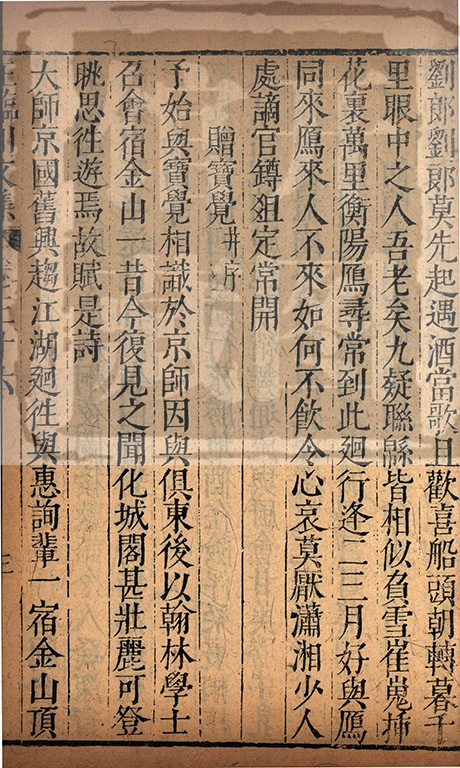 劉郎劉郎莫先起遇酒當歌且歡喜船頭朝轉暮千
里眼中之人吾老矣九疑聯緜皆相似負雪崔嵬揷
花裏萬里衡陽鴈尋常到此廻行逢二三月好與鴈
同來鴈來人不來如何不飲令心哀莫厭瀟湘少人
處謫官鐏俎定常開
贈寶覺并序
予始與寶覺相識於京師因與俱東後以翰林學士
召會宿金山一昔今復見之聞化城閣甚壯麗可登
眺思徃遊焉故賦是詩
大師京國舊興趨江湖廻徃與惠詢輩一宿金山頂